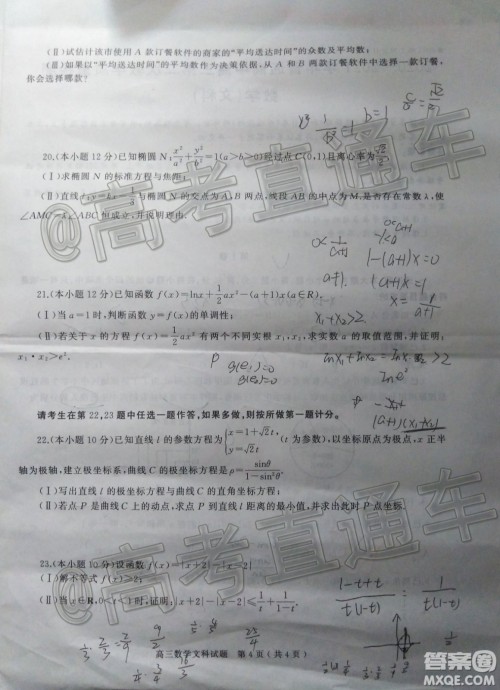 (Ⅱ)试估计该市使用 A 款订餐软件的商家的“平均送达时间”的众数及平均数;
(Ⅲ)如果以“平均送达时间”的平均数作为决策依据,从 A 和 B 两款订餐软件中选择一款订餐,
你会选择哪款?
20.(本小题 12 分)已知椭圆 N:x²/a²+y²/b²=1(a>b>0)经过点 C(0,1)且离心率为√2/2.
(Ⅰ)求椭圆 N 的标准方程与焦距;
(Ⅱ)直线 l:y=kx-1/3与椭圆 N 的交点为 A,B 两点,线段 AB 的中点为 M.是否存在常数 λ,使
∠AMC=λ·∠ABC 恒成立,并说明理由.
21.(本小题 12 分)已知函数 f(x)=lnx+1/2ax²-(a+1)x(a∈R).
(Ⅰ)当 a=1 时,判断函数 y=f(x)的单调性;
(Ⅱ)若关于 x 的方程 f(x)=1/2ax² 有两个不同实根 x₁,x₂,求实数 a 的取值范围,并证明:
x₁·x₂>e².
请考生在第 22,23 题中任选一题作答,如果多做,则按所做第一题计分.
22.(本小题 10 分)已知直线 l 的参数方程为{x=1+√2t, y=√2t,(t 为参数),以坐标原点为极点,x 正半
轴为极轴,建立极坐标系,曲线 C 的极坐标方程为 ρ=sinθ/(1-sin²θ).
(Ⅰ)写出直线 l 的极坐标方程与曲线 C 的直角坐标方程;
(Ⅱ)若点 P 是曲线 C 上的动点,求点 P 到直线 l 距离的最小值,并求出此时 P 点坐标.
23.(本小题 10 分)设函数 f(x)=|x+2|-|x-2|
(Ⅰ)解不等式 f(x)≥2;
(Ⅱ)当 x∈R,0<t<1 时,证明:|x+2|-|x-2|≤1/t+1/(1-t).
高三数学文科试题 第 4 页(共 4 页)
@高考直通车
1-(a+1)x=0
x=1/(a+1)
x₁+x₂>2
g(e₁)=0
(1-t+t)/(t(1-t)) = 1/(t(1-t))
答案圈